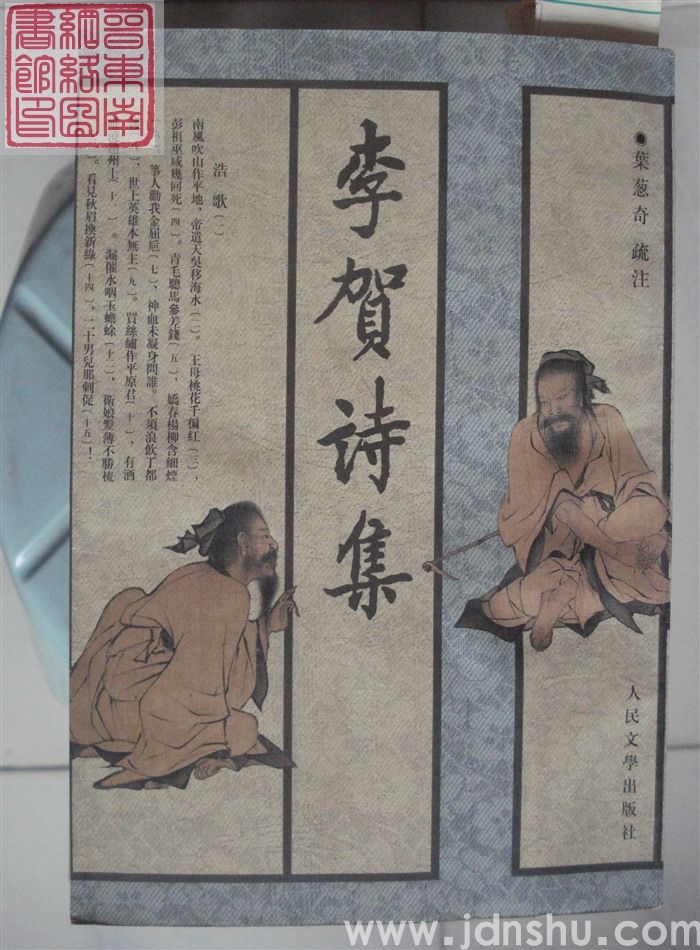 葉葱奇 疏注
人民文學出版社
李賀詩集
浩歌(一)
南風吹山作平地，帝遣天吳移海水(二)。王母桃花千徧紅(三)，
彭祖巫咸幾回死(四)。青毛驄馬參差錢(五)，嬌春楊柳含細煙
箏人勸我金屈巵(七)，神血未凝身問誰。不須浪飲丁都
世上英雄本無主(九)。買絲繡作平原君(十)，有酒
州土(十一)。漏催水咽玉蟾蜍(十二)，衛娘髮薄不勝梳
看見秋眉換新綠(十四)，二十男兒那刺促(十五)！
晉東南
網絡圖
書館印
www.jdnshu.com